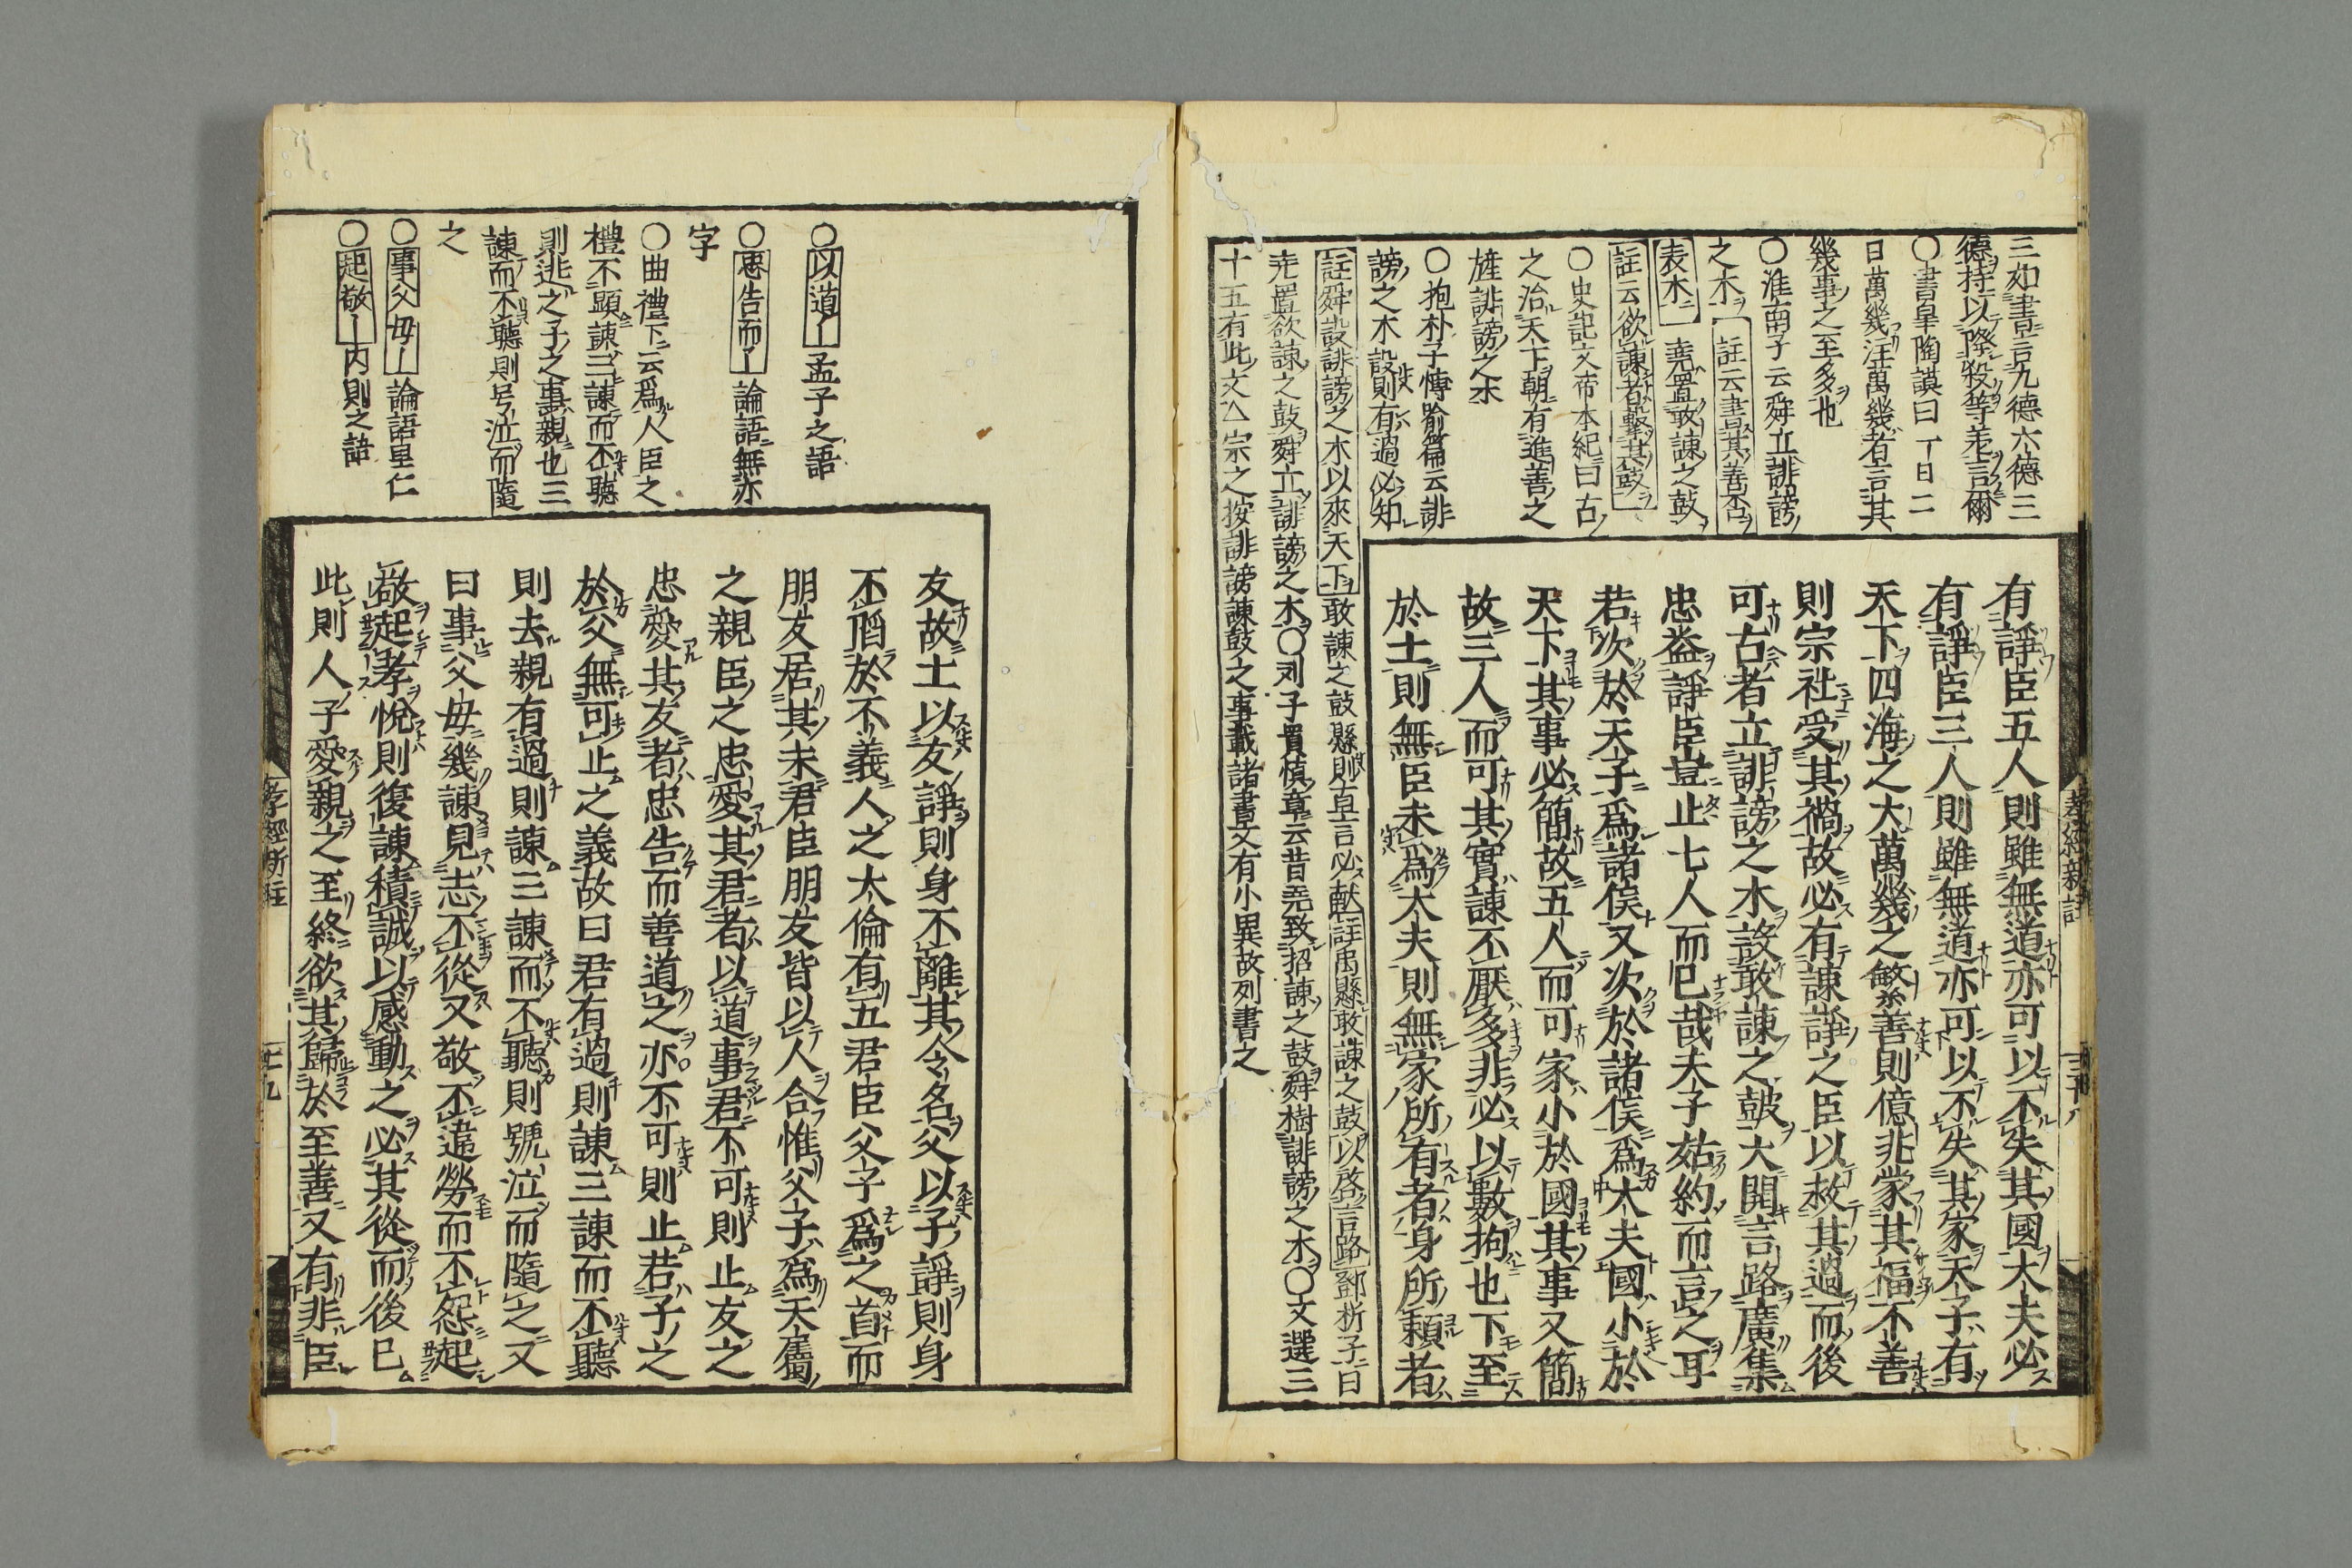 三如書言九德六德三
德持以降殺等差言爾
○書皐陶謨曰一日二
日萬幾注萬幾者言其
幾事之至多也
○淮南子云舜立誹謗
之木註云書其善否
表木 堯置敢諫之鼓
註云欲諫者擊其鼓
○史記文帝本紀曰古
之治天下朝有進善之
旌誹謗之木
○抱朴子博喻篇云誹
謗之木設則有過必知
註舜設誹謗之木以來天下敢諫之鼓懸則直言必献註禹懸敢諫之鼓以啓言路鄧析子曰
堯置欲諫之鼓舜立誹謗之木○列子貫慎章云昔堯致招諫之鼓舜樹誹謗之木○文選三
十五有此文△宗之按誹謗諫鼓之事載諸書文有小異故列書之
有諍臣五人則雖無道亦可以不失其國大夫必
有諍臣三人則雖無道亦可以不失其家天子有
天下四海之大萬幾之繁善則億兆蒙其福不善
則宗社受其禍故必有諫諍之臣以救其過而後
可古者立誹謗之木設敢諫之鼓大開言路廣集
忠益諍臣豈止七人而已哉夫子姑約而言之耳
若次於天子爲諸侯又次於諸侯爲大夫國小於
天下其事必簡故五人而可家小於國其事又簡
故三人而可其實諫不厭多非必以數拘也下至
於士則無臣未爲大夫則無家所有者身所賴者
孝經新註
三十八
○以道 孟子之語
○忠告而 論語無亦
字
○曲禮下云爲人臣之
禮不顯諫三諫而不聽
則逃之子之事親也三
諫而不聽則号泣而隨
之
○事父母 論語里仁
○起敬 内則之語
友故士以友諍則身不離其令名父以子諍則身
不陷於不義人之大倫有五君臣父子爲之首而
朋友居其末君臣朋友皆以人合惟父子爲天屬
之親臣之忠愛其君者以道事君不可則止友之
忠愛其友者忠告而善道之亦不可則止若子之
於父無可止之義故曰君有過則諫三諫而不聽
則去親有過則諫三諫而不聽則號泣而隨之又
曰事父母幾諫見志不從又敬不違勞而不怨起
敬起孝悅則復諫積誠以感動之必其從而後已
此則人子愛親之至終欲其歸於至善又有非臣
孝經新註
三十九